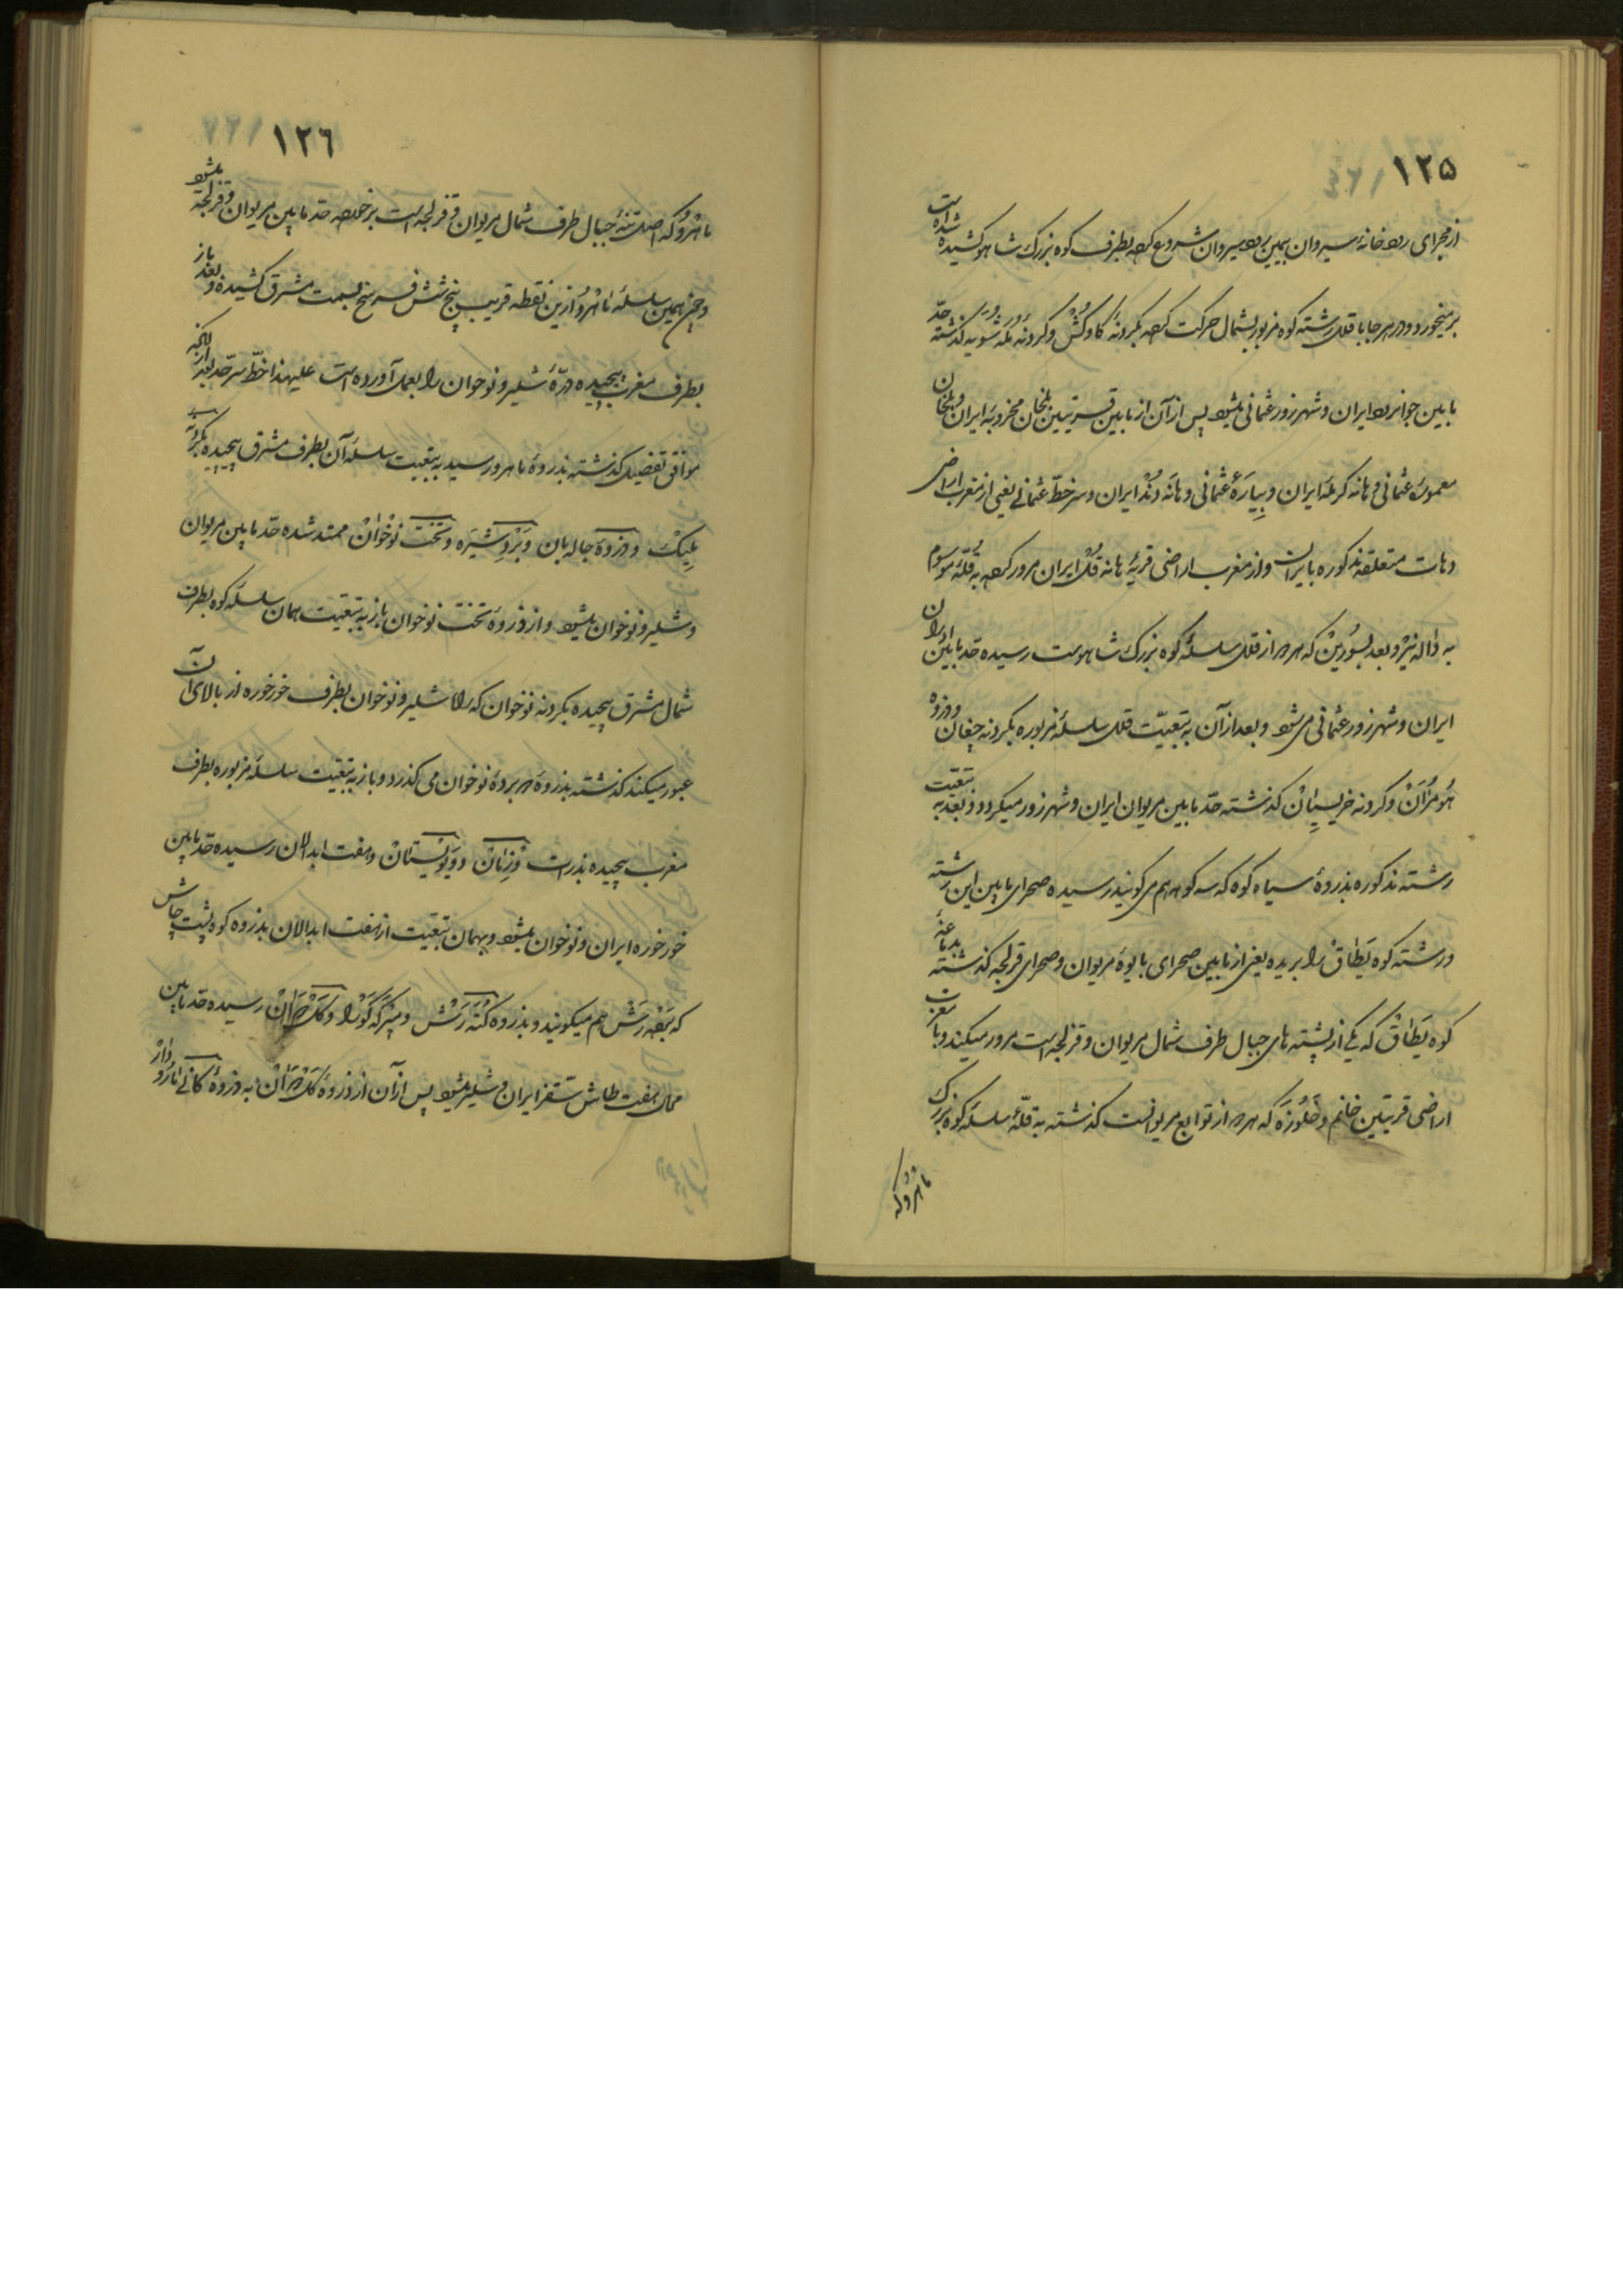 ١٢٥
از مجرای رودخانهٔ سیروان بیمین رود سیروان شروع کرده بطرف کوه بزرک شاهو کشیده شده است
بر میخورد و در هر جا با قلل رشته کوه مزبور بشمال حرکت کرده بکردنهٔ کاوکش و کردنه کذشته حدّ
مابین جوانرود ایران و شهرزور عثمانی میشود پس از آن از مابین قریتین بلخان مخروبهٔ ایران و بلخان
معمورهٔ عثمانی و هانه کرمله ایران و بیارهٔ عثمانی و هانه دند ایران و سر خطّ عثمانی یعنی از مغرب اراضی
دهات متعلقه مذکوره بایران و از مغرب اراضی قریهٔ هانه قل ایران مرور کرده به قلّهٔ موسوم
به داله نیژ و بعد بسورین که هر دو از قلل سلسلهٔ کوه بزرک شاهوست رسیده حد مابین اورامان
ایران و شهرزور عثمانی می شود و بعد از آن به تبعیّت قلل سلسلهٔ مزبوره بکردنه چغان و ذروه
هومران و کردنه خریسپان کذشته حدّ مابین مریوان ایران و شهرزور میکردد و بعد به تبعیّت
رشته مذکوره بذروهٔ سیاه کوه که سه کوه هم می کویند رسیده صحرای مابین این رشته
و رشته کوه یَطاق را بریده یعنی از مابین صحرای بایوهٔ مریوان و صحرای قزلجه کذشته بدماغهٔ
کوه یَطاق که یکی از پشته های جبال طرف شمال مریوان و قزلجه است مرور میکند و با مغرب
اراضی قریتین خانم و خلوزه که هر دو از توابع مریوانست کذشته به قلّهٔ سلسله کوه بزرک
ناهرو که
١٢٦
ناهرو که اصل تنهٔ جبال طرف شمال مریوان و قزلجه است بر خورده حد مابین مریوان و قزلجه میشود
و چون همین سلسلهٔ ناهرو ازین نقطه قریب پنج شش فرسخ بسمت مشرق کشیده و بعد باز
بطرف مغرب پیچیده درّهٔ شلیر و نوخوان را بعمل آورده است علیهذا خطّ سرحدّ بعد از آنکه
موافق تفصیل کذشته بذروهٔ ناهرو رسید به تبعیت سلسلهٔ آن بطرف مشرق پیچیده بکردنه
بلیک و ذروهٔ جاله بان و برد شیره و تخت نوخوان ممتد شده حدّ مابین مریوان
و شلیر و نوخوان میشود و از ذروهٔ تخت نوخوان باز به تبعیت همان سلسله کوه بطرف
شمال مشرق پیچیده بکردنه نوخوان که راه شلیر و نوخوان بطرف خورخوره از بالای آن
عبور میکند کذشته بذروهٔ بردهٔ نوخوان می کذرد و باز به تبعیت سلسلهٔ مزبوره بطرف
مغرب پیچیده بذرات و هفت ابدالان رسیده حدّ مابین
خورخوره ایران و نوخوان میشود و بهمان تبعیت از هفت ابدالان بذروه کوه پشت چاش
که هم میکویند و بذروه کته رش و رسیده حدّ مابین
محال هفت طاش سقز ایران و شلیر میشود پس از آن از ذروهٔ به ذروهٔ کانی